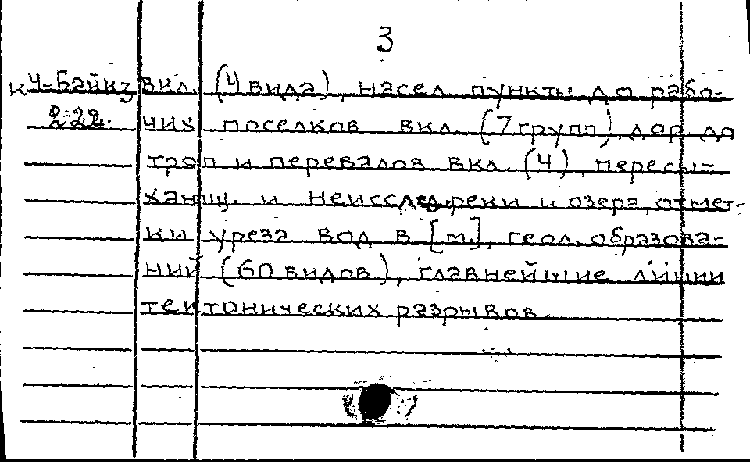 3
к Ч-Байкз вкл. (4 вида), насел пункты до рабо-
222. чих поселков вкл. (7 групп) дор до
троп и перевалов вкл (4), пересы-
хающ. и неисслед. реки и озера, отмет-
ки уреза вод в [м.], геол. образова-
ний (60 видов), главнейшие линии
тектонических разрывов.